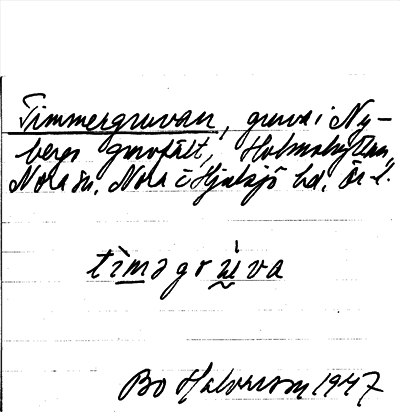 Timmergruvan, gruva i Ny-
bergs gruvfält,
Nora sn. Nora o Hjulsjö hd, Ör. l.
tìmәgrùva
Bo Halvarson 1947